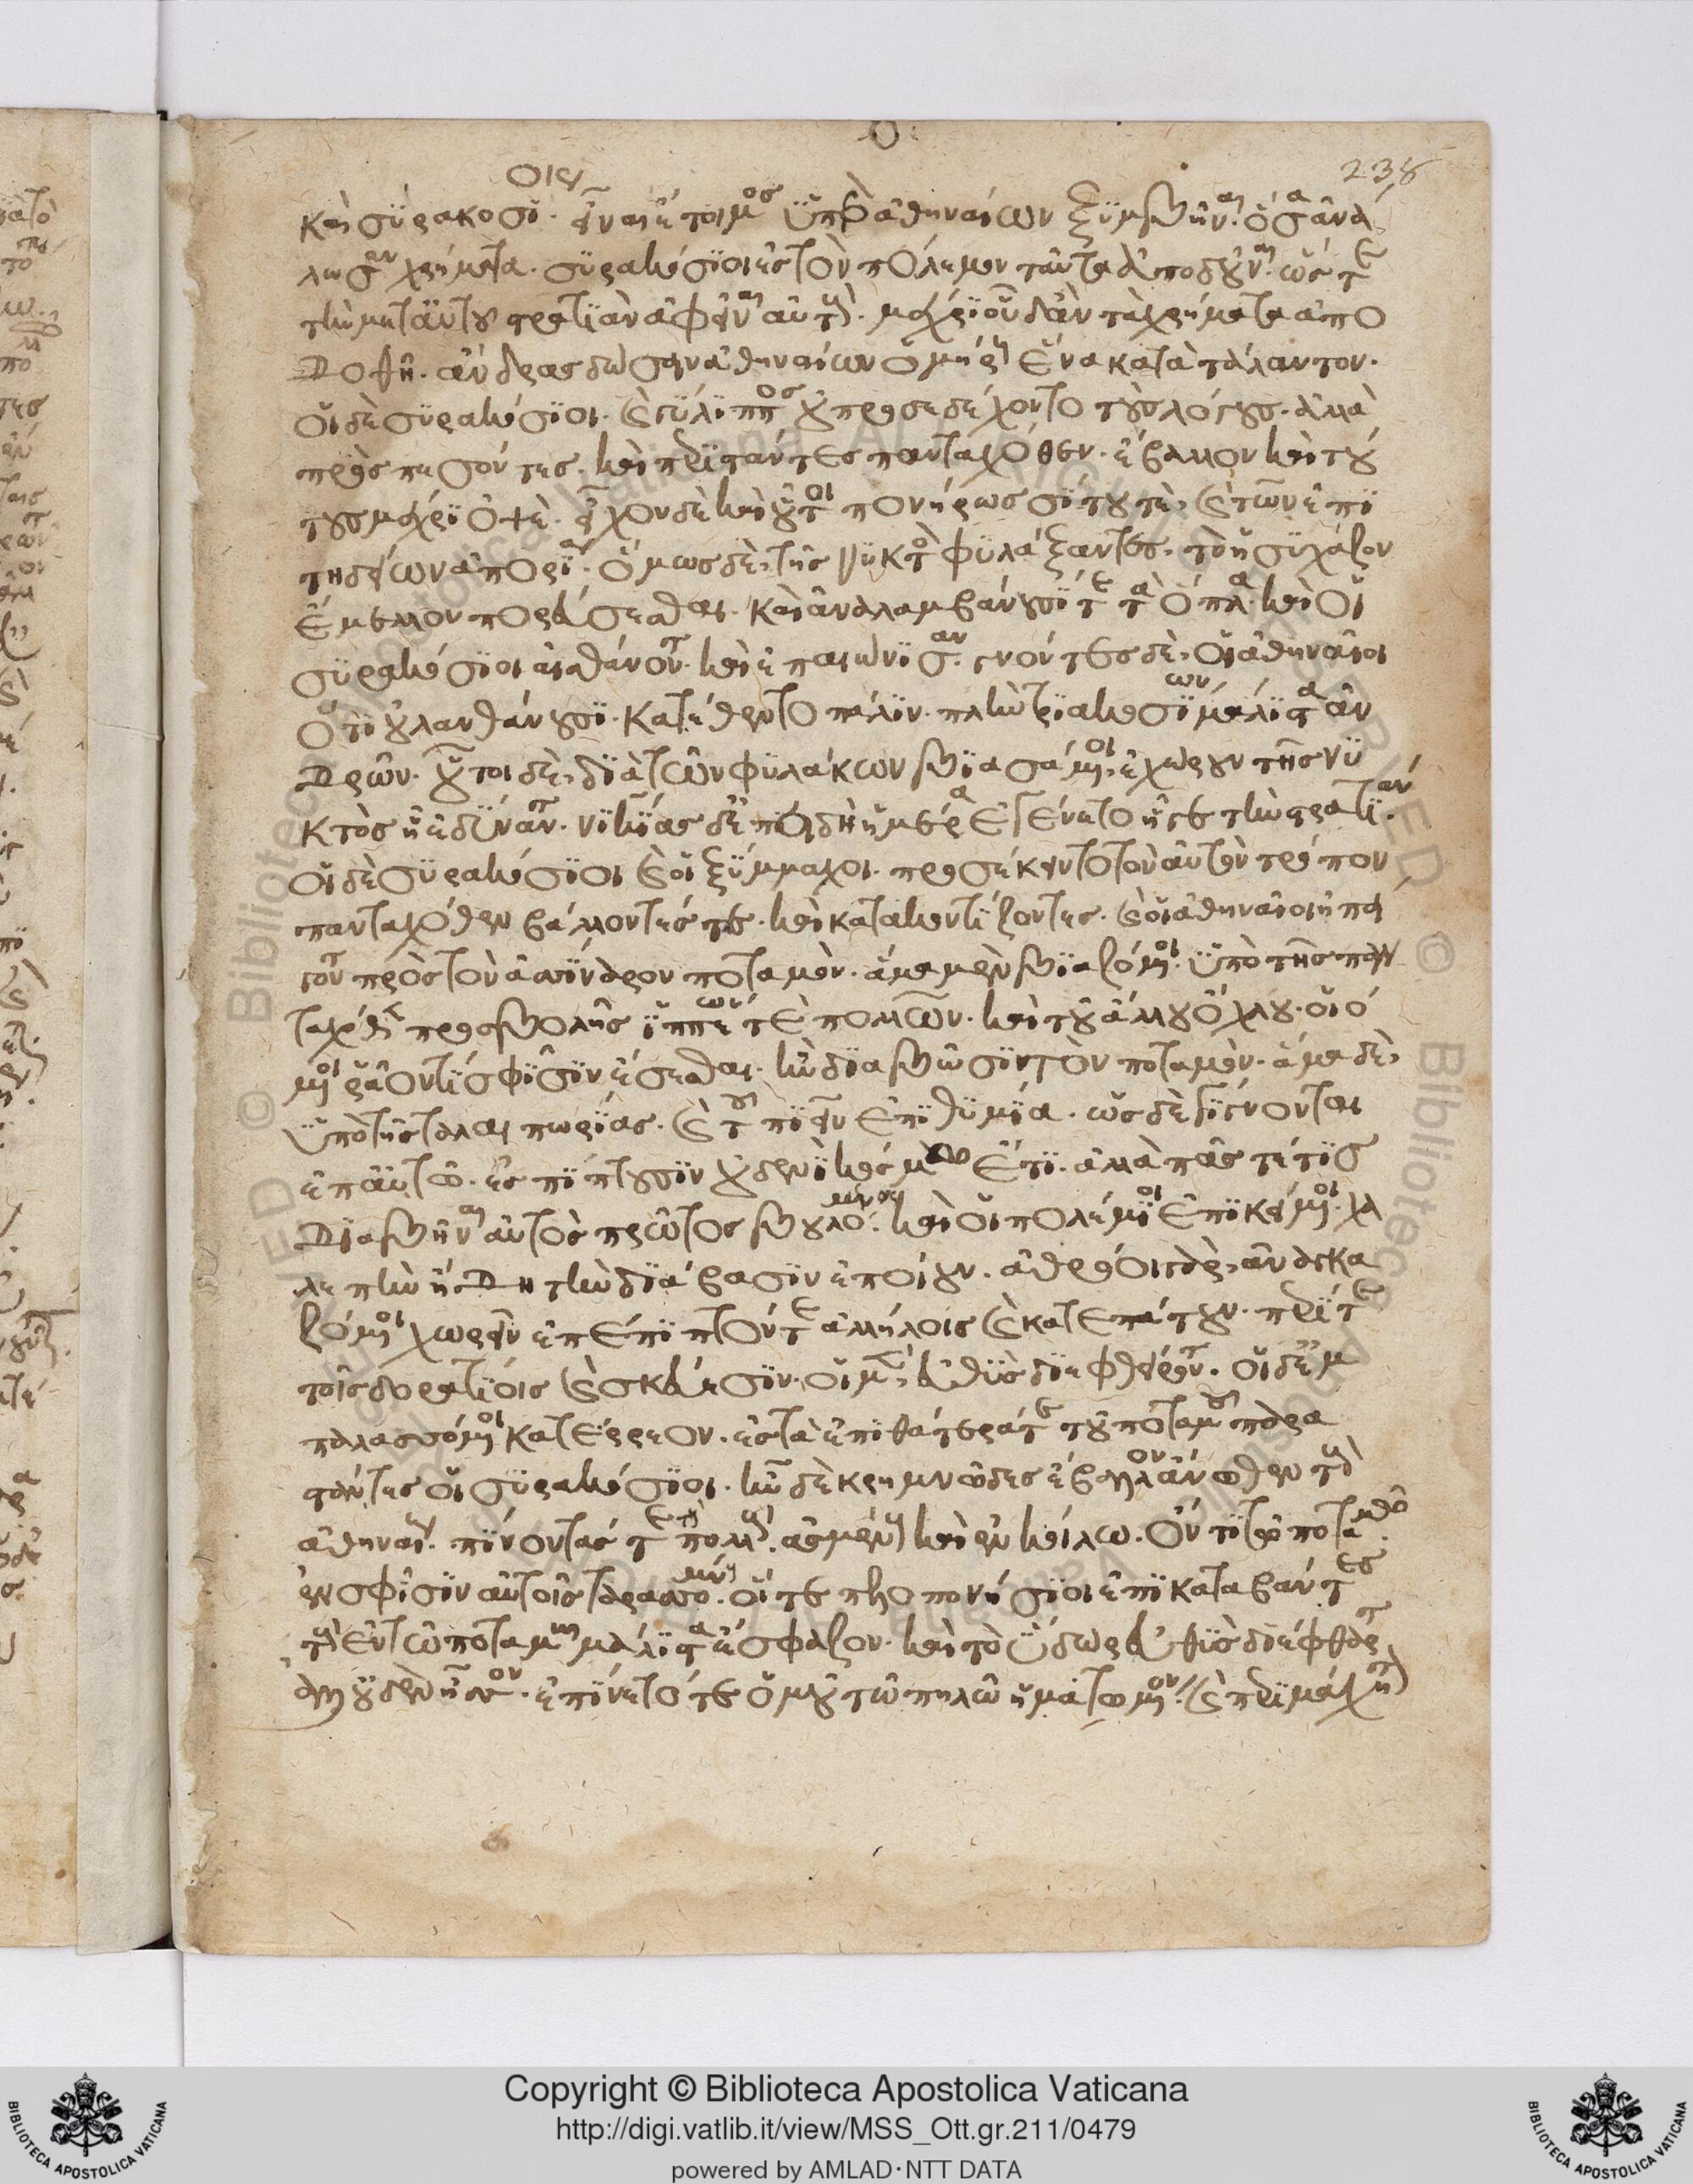 238
καὶ συρακοσίοις. εἶναι ἕτοιμος ὑπὲρ ἀθηναίων ξυμβῆναι. ὅσα ἀνά
λωσαν χρήματα. συρακόσιοι ἐς τὸν πόλεμον ταῦτα ἀποδοῦναι. ὥστε
τὴν μετ' αὐτοῦ στρατιὰν ἀφεῖναι αὐτούς. μέχρι οὗ δ' ἂν τὰ χρήματα ἀπο
δοθῆ. ἄνδρας δώσειν ἀθηναίων ὁμήρους ἕνα κατὰ τάλαντον.
οἱ δὲ συρακόσιοι. καὶ γύλιππος οὐ προσεδέχοντο τοὺς λόγους. ἀλλὰ
προσπεσόντες. καὶ περιστάντες πανταχόθεν. ἔβαλλον καὶ τού
τους μέχρι ὀψέ. εἶχον δὲ καὶ οὗτοι πονήρως σίτου τὲ, καὶ τῶν ἐπι
τηδείων ἀπορία. ὅμως δὲ, τῆς νυκτὸς φυλάξαντες. τὸ ἡσυχάζον
ἔμελλον πορεύσεσθαι. καὶ ἀναλαμβάνουσί τε τὰ ὅπλα. καὶ οἱ
συρακόσιοι αἰσθάνονται. καὶ ἐπαιώνισαν. γνόντες δὲ, οἱ ἀθηναῖοι
ὅτι οὐ λανθάνουσι. κατέθεντο πάλιν. πλὴν τριακοσίων μάλιστα ἀν
δρῶν. οὗτοι δὲ, διὰ τῶν φυλάκων βιασάμενοι, ἐχώρουν τῆς νυ
κτὸς ἧ ἐδύναντο. νικίας δ' ἐπειδὴ ἡμέρα ἐγένετο ἦγε τὴν στρατιάν.
οἱ δὲ συρακόσιοι καὶ οἱ ξύμμαχοι. προσέκειντο τὸν αὐτὸν τρόπον
πανταχόθεν βάλλοντές τε. καὶ κατακοντίζοντες. καὶ οἱ ἀθηναῖοι ἠπεί
γοντο πρὸς τὸν ἀσσίναρον ποταμόν. ἅμα μὲν βιαζόμενοι. ὑπὸ τῆς παν
ταχόθεν προσβολῆς ἱππέων τὲ πολλῶν. καὶ τοῦ ἄλλου ὄχλου. οἰό
μενοι ρᾶον τί σφίσιν ἔσεσθαι. ἢν διαβῶσιν τὸν ποταμόν. ἅμα δὲ,
ὑπὸ τῆς ταλαιπωρίας. καὶ τοῦ πιεῖν ἐπιθυμία. ὡς δὲ γίγνονται
ἐπ' αὐτῶ. ἐσπίπτουσιν οὐδενὶ κόσμω ἔτι. ἀλλὰ πᾶς τέ τις
διαβῆναι αὐτὸς πρῶτος βουλόμενος. καὶ οἱ πολέμιοι ἐπικείμενοι. χα
λεπὴν ἤδη τὴν διάβασιν ἐποίουν. ἀθρόοι γὰρ, ἀναγκα
ζόμενοι χωρεῖν ἐπέπιπτόν τε ἀλλήλοις καὶ κατεπάτουν. περί τε
τοῖς δορατίοις καὶ σκεύεσιν. οἱ μὲν, εὐθὺς διεφθείροντο. οἱ δ' ἐμ
παλασσόμενοι κατέρρεον. ἐς τὰ ἐπὶ θάτερά τε τοῦ ποταμοῦ παρα
στάντες οἱ συρακόσιοι. ἦν δὲ κρημνῶδες ἔβαλλον ἄνωθεν τοὺς
ἀθηναίους. πίνοντάς τε τοὺς πολλοὺς. ἀσμένους καὶ ἐν κοίλω. ὄντι τῶ ποταμῶ.
ἐν σφίσιν αὐτοῖς ταρασσομένους. οἵ τε πελοποννήσιοι ἐπικαταβάντες
τοὺς ἐν τῶ ποταμῶ μάλιστα ἔσφαζον. καὶ τὸ ὕδωρ εὐθὺς διέφθαρτο,
ἀλλ' οὐδὲν ἧσσον. ἐπίνετό τε ὁμοῦ τῶ πηλῶ ἡματωμένον. καὶ περιμάχητον
Copyright © Biblioteca Apostolica Vaticana
http://digi.vatlib.it/view/MSS_Ott.gr.211/0479
powered by AMLAD·NTT DATA
BIBLIOTECA APOSTOLICA VATICANA
BIBLIOTECA APOSTOLICA VATICANA